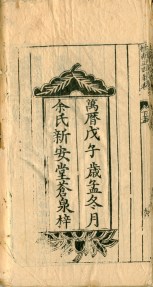 萬曆戊午歲孟冬月
余氏新安堂蒼泉梓